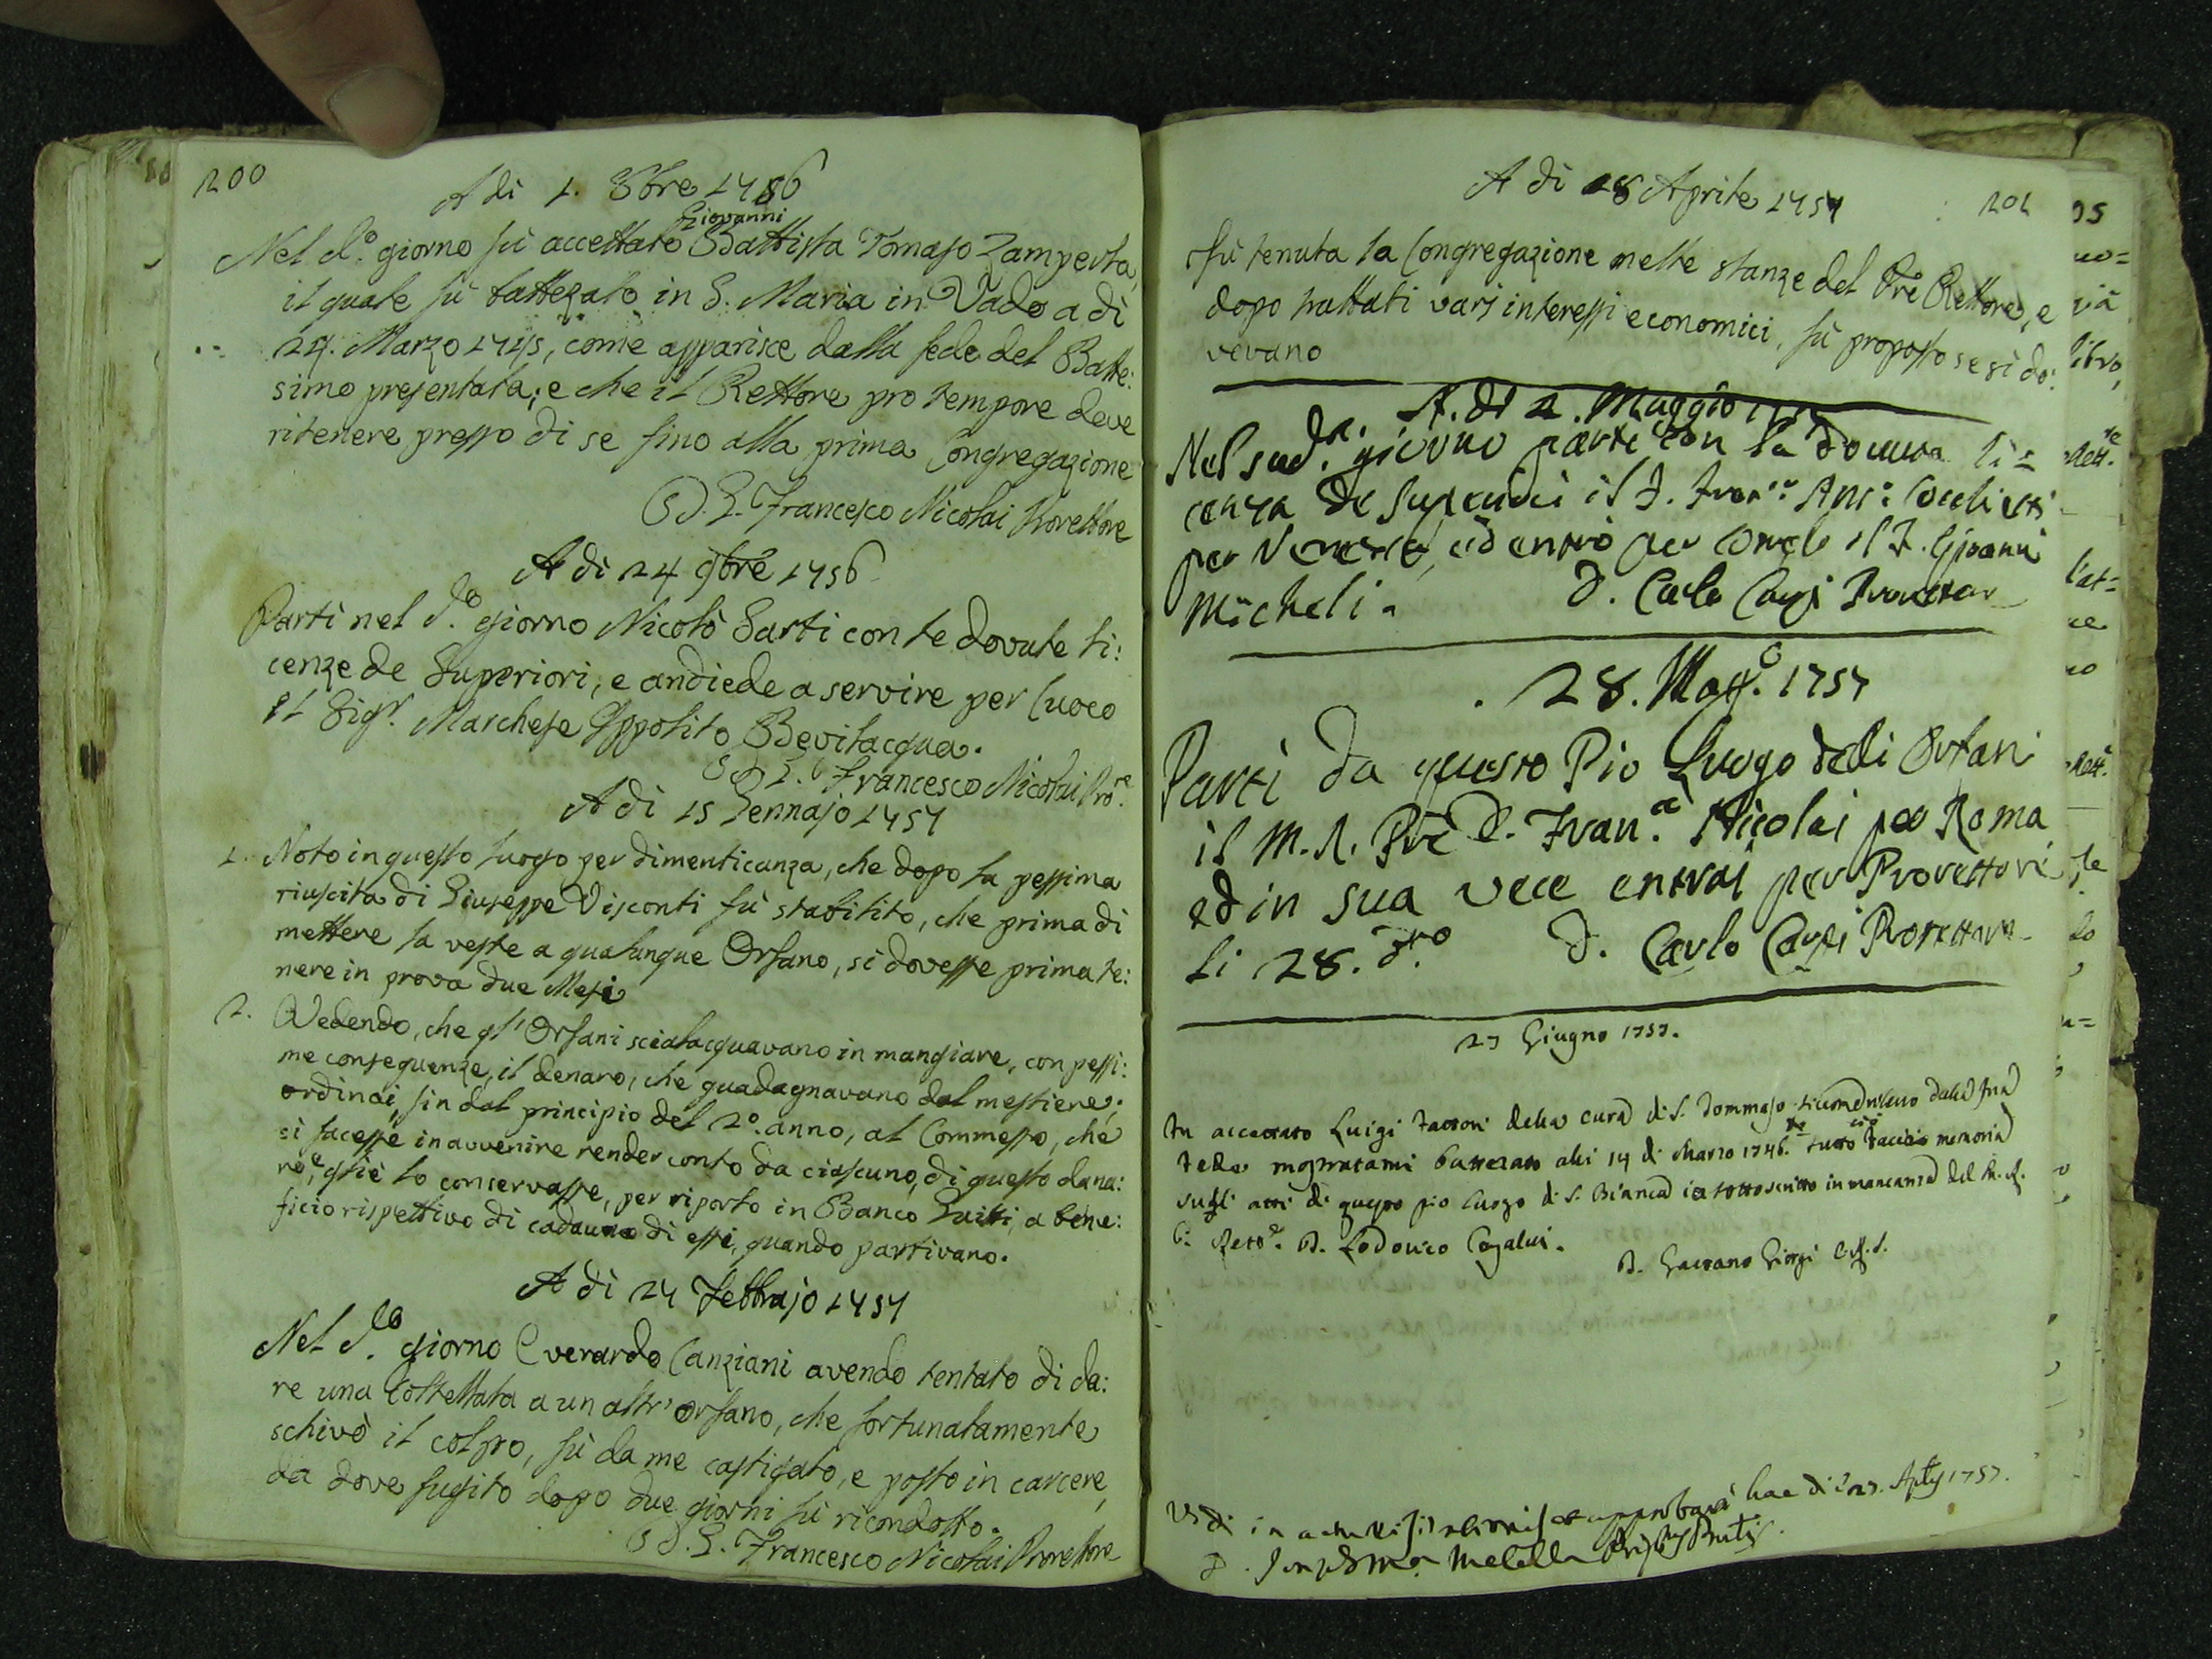 200
A di 1. 8bre 1756
Giovanni
Nel d.o giorno fù accettato Battista Tomaso Zamperla,
il quale fù battezato in S. Maria in Vado a dì
27. Marzo 1745, come apparisce dalla fede del Batte:
simo presentata; e che il Rettore pro tempore deve
ritenere presso di se fino alla prima Congregazione
D. G. Francesco Nicolai Prorettore
A dì 24 9bre 1756
Partì nel d.o giorno Nicolò Sarti con le dovute li:
cenze de Superiori, e andiede a servire per Cuoco
il Sigr. Marchese Ippolito Bevilacqua.
D. G. Francesco Nicolai Pro.re
A dì 15 Gennajo 1757
1. Noto in questo luogo per dimenticanza, che dopo la pessima
riuscita di Giuseppe Visconti fù stabilito, che prima di
mettere la veste a qualunque Orfano, si dovesse prima te:
nere in prova due Mesi
2. Vedendo, che gl' Orfani scialacquavano in mangiare, con pessi:
me conseguenze, il denaro, che guadagnavano dal mestiere;
ordinai, fin dal principio del 2.o anno, al Commesso, che
si facesse in avvenire render conto da ciascuno, di questo dana:
ro, e gliè lo conservasse, per riporlo in Banco, a bene:
ficio rispettivo di cadauno di essi, quando partivano.
A dì 24 Febbrajo 1757
Nel d.o giorno Everardo Canziani avendo tentato di da:
re una Coltellata a un altr' orfano, che fortunatamente
schivò il colpo, fù da me castigato, e posto in carcere,
da dove fugito dopo due giorni fù ricondotto.
D. G. Francesco Nicolai Prorettore
A dì 28 Aprile 1757
201
fù tenuta la Congregazione nelle stanze del Pre Rettore, e
dopo trattati varj interessi economici, fù proposto se si do:
vevano
A. dì 2. Maggio
Nel sud.o giorno partì con la dovuta li=
cenza de Superiori il F. Fran.co Ant.o
per Venezia, ed entrò per il F. Gioanni
Micheli. D. Carlo Prorettore
28. Magg.o 1757
Partì da questo Pio Luogo delli Orfani
il M. R. Pre D. Fran.o Nicolai per Roma
ed in sua vece entrai per Prorettore
li 28. dto D. Carlo Prorettore
27 Giugno 1757.
Fu accettato Luigi Tattoni della cura di S. Tommaso dalla sua
fede mostratami battezato alli 14 di Marzo 1746. tutto ciò faccio memoria
sugli atti di questo pio luogo di S. Bianca io sottoscritto in mancanza del M. R.
P. Rett.e D. Lodovico Cagalvi.
D. Gaetano Giorgi C.R.S.
Vidi in actu Visitationis et approbavi hac die 27. 1757.